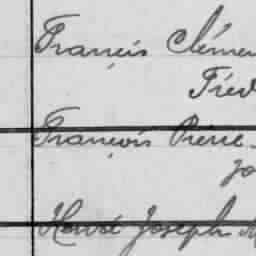 Francis Clémen
Fréd
François Pierre
Jo
Hervé Joseph M